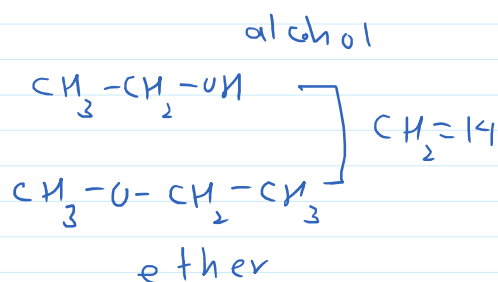 alcohol
CH₃-CH₂-OH
CH₂=14
CH₃-O-CH₂-CH₃
ether